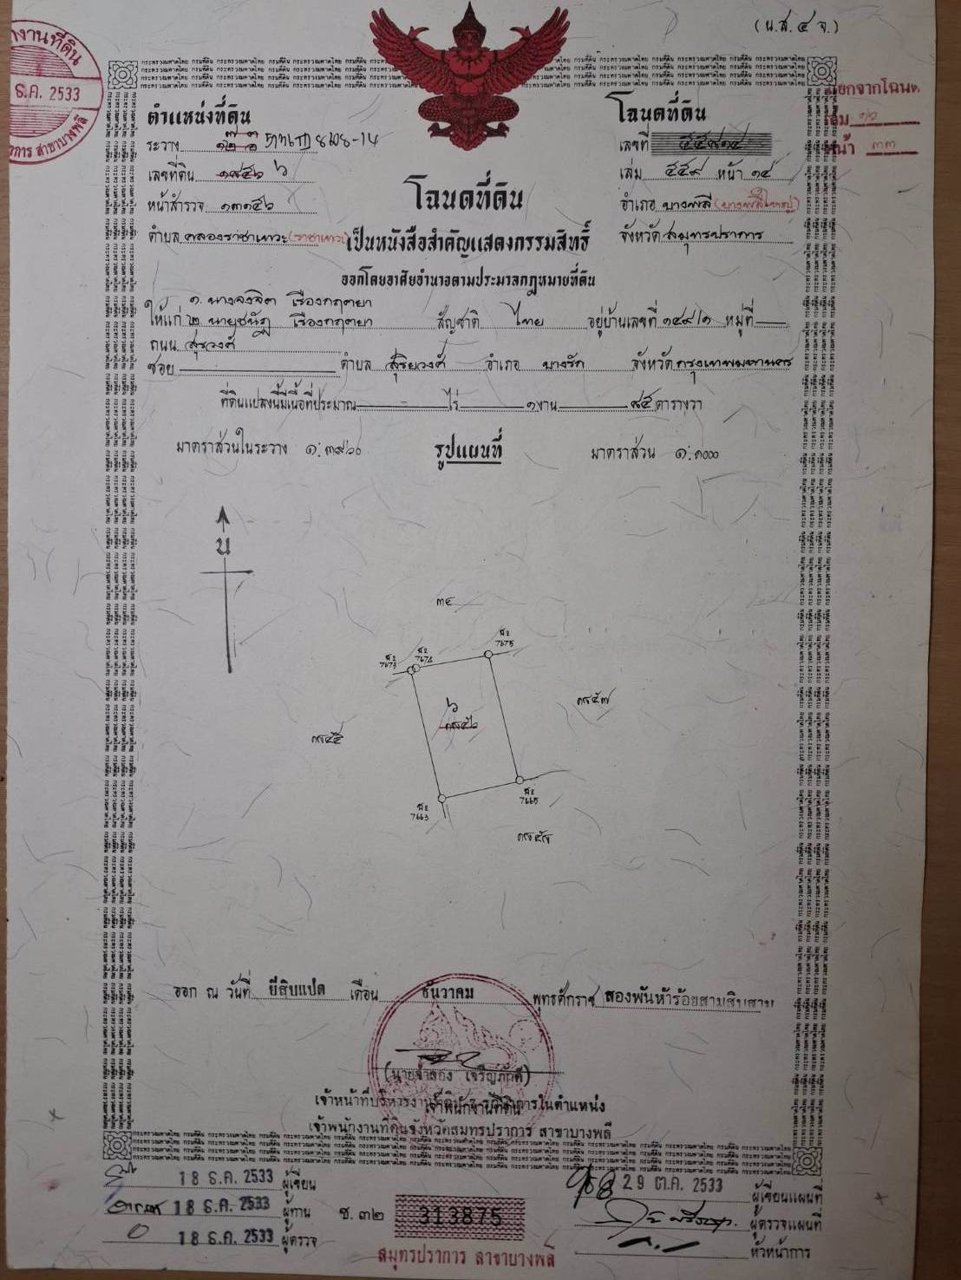 (น.ส.๔ จ.)
งานที่ดิน
ธ.ค. 2533
การ สาขาบางพลี
ตำแหน่งที่ดิน
ระวาง
เลขที่ดิน ๑๙๕๖ ๖
หน้าสำรวจ ๑๓๑๕๖
ตำบล คลองราชาเทวะ (ราชาเทวะ)
โฉนดที่ดิน
เลขที่
เล่ม ๕๕๙ หน้า ๑๔
อำเภอ บางพลี (บางพลีใหญ่)
จังหวัด สมุทรปราการ
แยกจากโฉนด
เล่ม ๑๖
หน้า ๓๓
โฉนดที่ดิน
เป็นหนังสือสำคัญแสดงกรรมสิทธิ์
ออกโดยอาศัยอำนาจตามประมวลกฎหมายที่ดิน
๑. นางจงจิต เรืองกฤตยา
ให้แก่ ๒. เรืองกฤตยา สัญชาติ ไทย อยู่บ้านเลขที่ ๑๔๙/๑ หมู่ที่
ถนน สุรวงศ์
ซอย ตำบล สุริยวงศ์ อำเภอ บางรัก จังหวัด กรุงเทพมหานคร
ที่ดินแปลงนี้มีเนื้อที่ประมาณ ไร่ ๑ งาน ๙๕ ตารางวา
มาตราส่วนในระวาง รูปแผนที่ มาตราส่วน ๑:๑๐๐๐
น
๓๔
7673
7674
7675
๖
7663
7665
ออก ณ วันที่ ยี่สิบแปด เดือน ธันวาคม พุทธศักราช สองพันห้าร้อยสามสิบสาม
(นายจำลอง เจริญภักดี)
เจ้าหน้าที่บริหารงานที่ดิน
เจ้าพนักงานที่ดิน
ในตำแหน่ง
เจ้าพนักงานที่ดินจังหวัดสมุทรปราการ สาขาบางพลี
18 ธ.ค. 2533 ผู้เขียน
18 ธ.ค. 2533 ผู้ทาน
18 ธ.ค. 2533 ผู้ตรวจ
ช. ๓๒ 313875
สมุทรปราการ สาขาบางพลี
29 ต.ค. 2533 ผู้เขียนแผนที่
ผู้ตรวจแผนที่
หัวหน้าการ